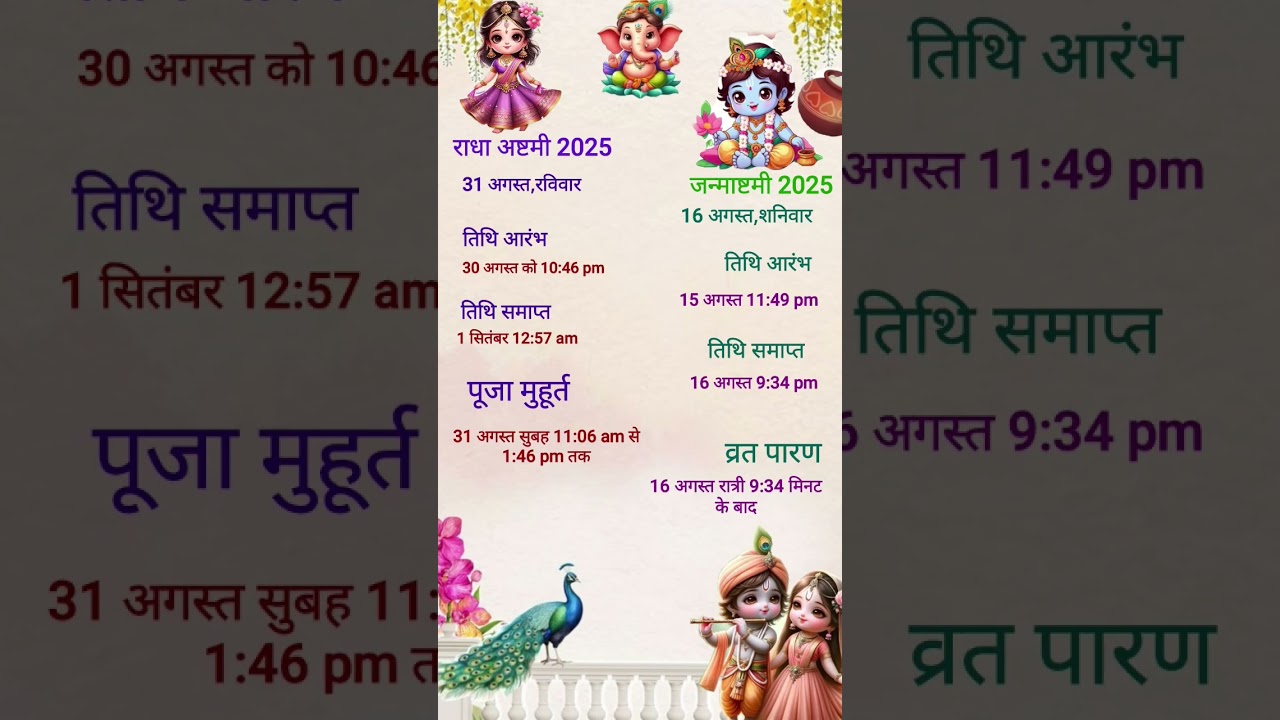 राधा अष्टमी 2025
31 अगस्त,रविवार
तिथि आरंभ
30 अगस्त को 10:46 pm
तिथि समाप्त
1 सितंबर 12:57 am
पूजा मुहूर्त
31 अगस्त सुबह 11:06 am से
1:46 pm तक
जन्माष्टमी 2025
16 अगस्त,शनिवार
तिथि आरंभ
15 अगस्त 11:49 pm
तिथि समाप्त
16 अगस्त 9:34 pm
व्रत पारण
16 अगस्त रात्री 9:34 मिनट
के बाद
30 अगस्त को 10:46
तिथि समाप्त
1 सितंबर 12:57 am
पूजा मुहूर्त
31 अगस्त सुबह 11:
1:46 pm
तिथि आरंभ
अगस्त 11:49 pm
तिथि समाप्त
अगस्त 9:34 pm
व्रत पारण